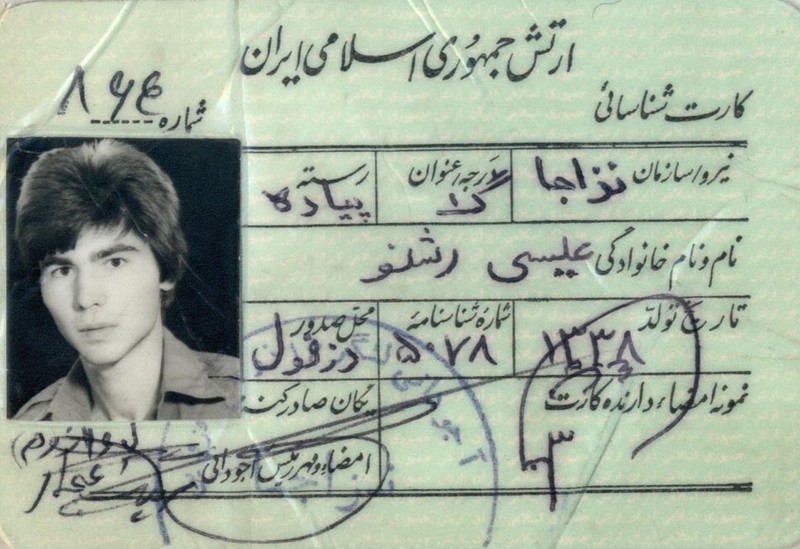 ارتش جمهوری اسلامی ایران
کارت شناسائی
شماره ۸۶۴
نیرو/سازمان نزاجا درجه/عنوان رسته پیاده
نام و نام خانوادگی عیسی رشنو
تاریخ تولد ۱۳۳۸ شماره شناسنامه ۵۰۷۸ محل صدور دزفول
نمونه امضاء دارنده کارت یکان صادرکننده
امضاء و مهر رئیس آجودانی